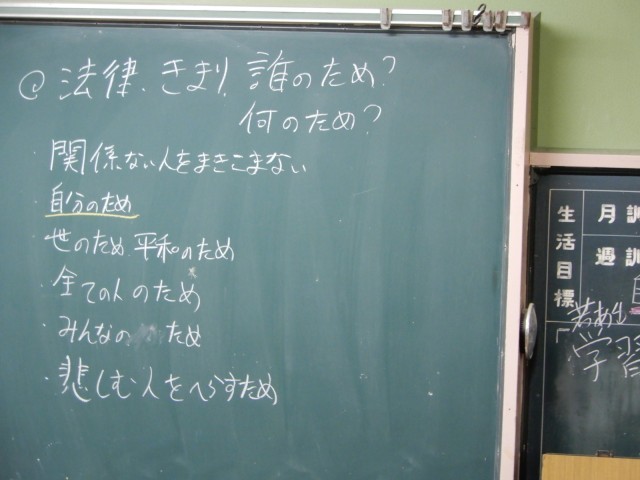 ◎法律、きまり、誰のため?
何のため?
・関係ない人をまきこまない
自分のため
・世のため、平和のため
・全ての人のため
・みんなの ため
・悲しむ人をへらすため
生活目標
月訓
週訓
「学習